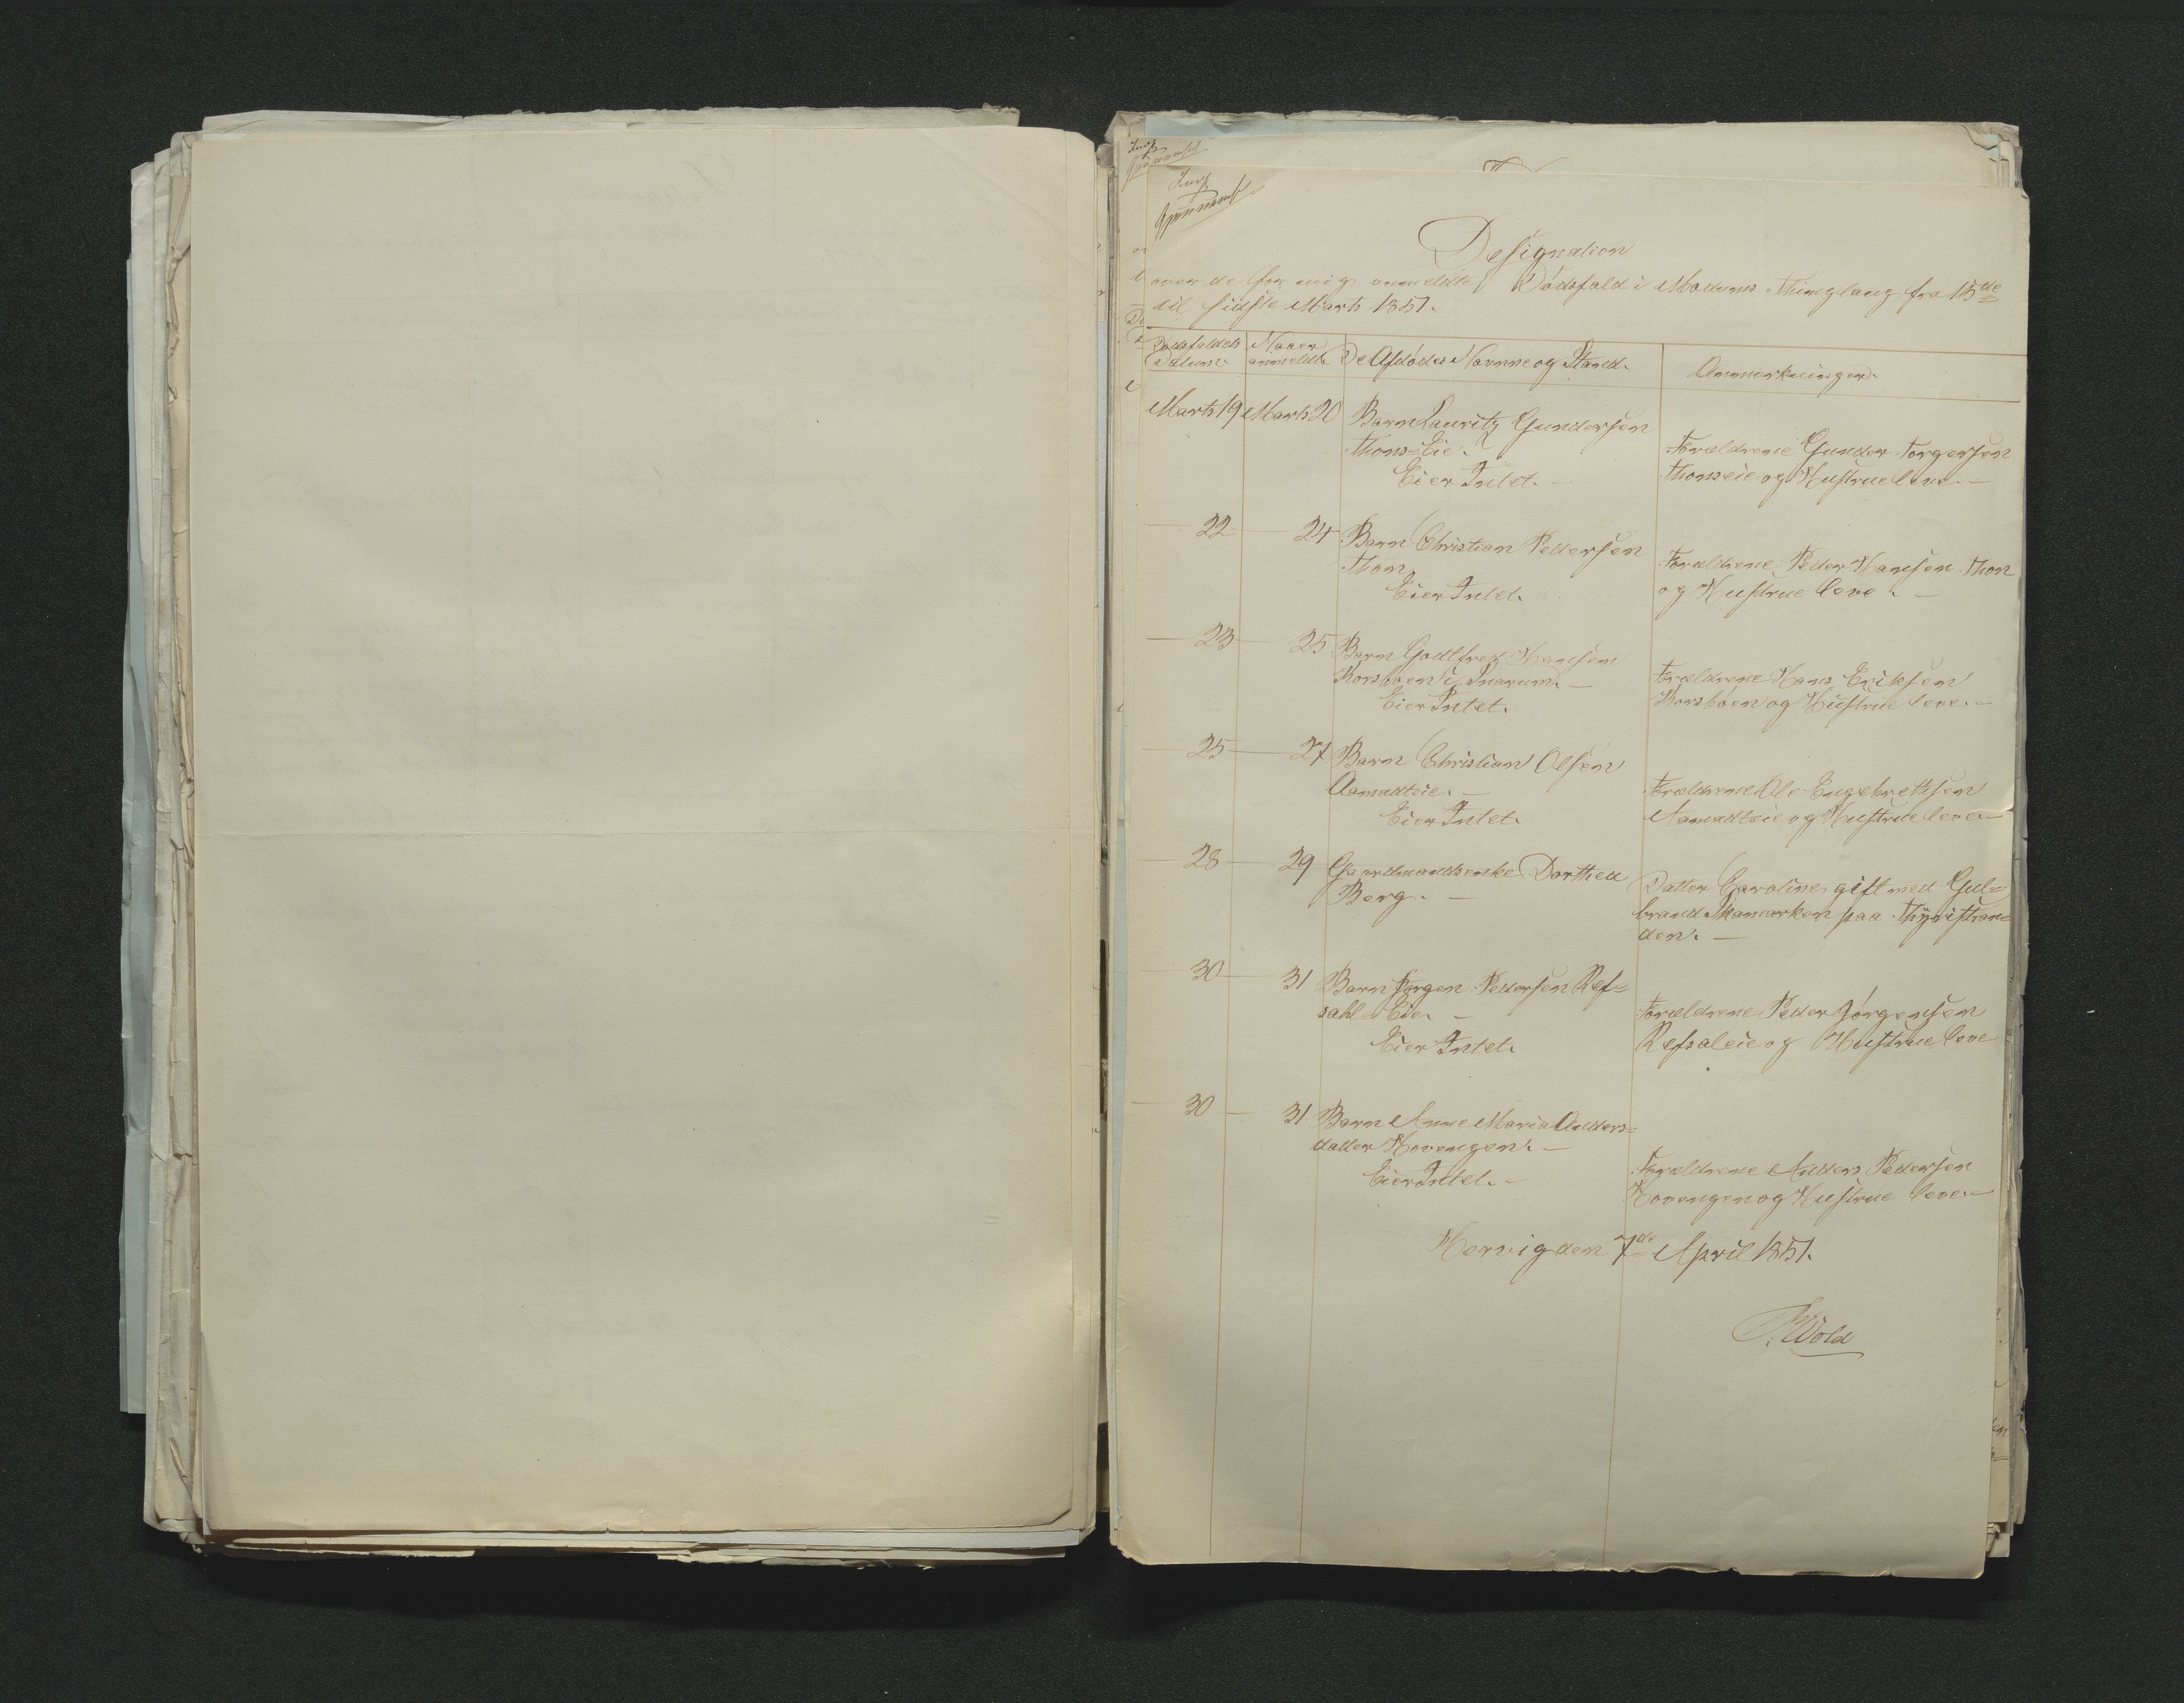 Designation
over de for mig anmeldte Dødsfald i Modums Thinglaug fra 15de
til sidste Marts 1851.
Dødsfaldets Datum. Naar anmeldt. De Afdødes Navne og Stand. Anmærkninger.
Marts 19 Marts 20 Barn Lauritz Gundersen
Thons=Eie.
Eier Intet. —
Forældrene Gunder Torgersen
Thonseie og Hustrue leve. —
22 — 24 Barn Christian Pedersen
Thon
Eier Intet.
Forældrene Peder Hansen Thon
og Hustrue leve. —
23 — 25 Barn Godtfred Hansen
Korsboen i Snarum. —
Eier Intet.
Forældrene Hans Eriksen
Korsboen og Hustrue leve. —
25 — 27 Barn Christian Olsen
Aamodteie. —
Eier Intet.
Forældrene Ole Engebrethsen
Aamodteie og Hustrue leve. —
28 — 29 Gaardmandsenke Dorthea
Berg. —
Datter Caroline, gift med Gul=
brand Skamarken paa Thyristran=
den. —
30 — 31 Barn Jørgen Pedersen Ref=
sahl=Eie. —
Eier Intet.
Forældrene Peder Jørgensen
Refsaleie og Hustrue leve
30 — 31 Barn Anne Maria Anders=
datter Hovengen. —
Eier Intet. —
Forældrene Anders Pedersen
Hovengen og Hustrue leve. —
Hervig den 7de April 1851.
P. Wold